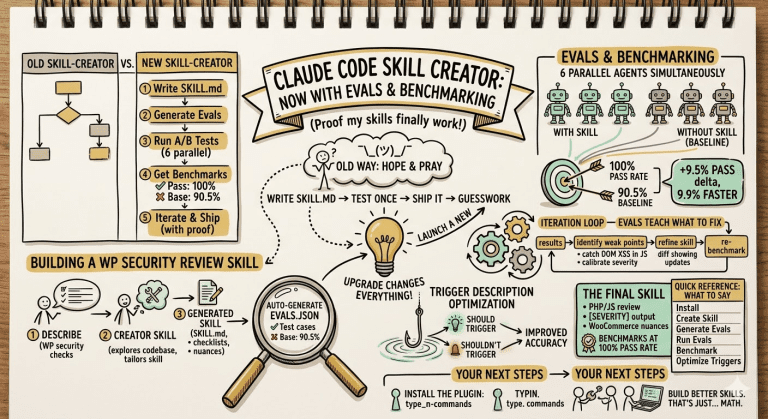 OLD SKILL-CREATOR
VS.
NEW SKILL-CREATOR
1 Write SKILL.md
2 Generate Evals
3 Run A/B Tests
(6 parallel)
4 Get Benchmarks
✓ Pass: 100%
✗ Base: 90.5%
5 Iterate & Ship
(with proof)
CLAUDE CODE SKILL CREATOR:
NOW WITH EVALS & BENCHMARKING
(Proof my skills finally work!)
¯\_(ツ)_/¯
OLD WAY: HOPE & PRAY
WRITE SKILL.MD → TEST ONCE → SHIP IT → GUESSWORK
LAUNCH A NEW
UPGRADE CHANGES
EVERYTHING!
EVALS & BENCHMARKING
6 PARALLEL AGENTS SIMULTANEOUSLY
WITH SKILL
WITHOUT SKILL
(BASELINE)
100%
PASS RATE
90.5%
BASELINE
+9.5% PASS
delta,
9.9% FASTER
ITERATION LOOP – EVALS TEACH WHAT TO FIX
results
identify weak points
• catch DOM XSS in JS
• calibrate severity
refine skill
diff showing
updates
re-
benchmark
BUILDING A WP SECURITY REVIEW SKILL
1 DESCRIBE
(WP security
checks)
2 CREATOR SKILL
(explores codebase,
tailors skill)
3 GENERATED
SKILL
(SKILL.md,
• checklists,
• nuances)
AUTO-GENERATE
EVALS.JSON
✓ Test cases
✗ Base: 90.5%
TRIGGER DESCRIPTION
OPTIMIZATION
SHOULD
TRIGGER
SHOULDN'T
TRIGGER
IMPROVED
ACCURACY
THE FINAL SKILL
• PHP/JS review
• [SEVERITY] output
• WooCommerce nuances
BENCHMARKS AT
100% PASS RATE
QUICK REFERENCE:
WHAT TO SAY
Install
Create Skill
Generate Evals
Run Evals
Benchmark
Optimize Triggers
YOUR NEXT STEPS → YOUR NEXT STEPS
INSTALL THE PLUGIN:
type_n-commands
TYPIN.
type. commands
BUILD BETTER SKILLS.
THAT'S JUST... MATH.